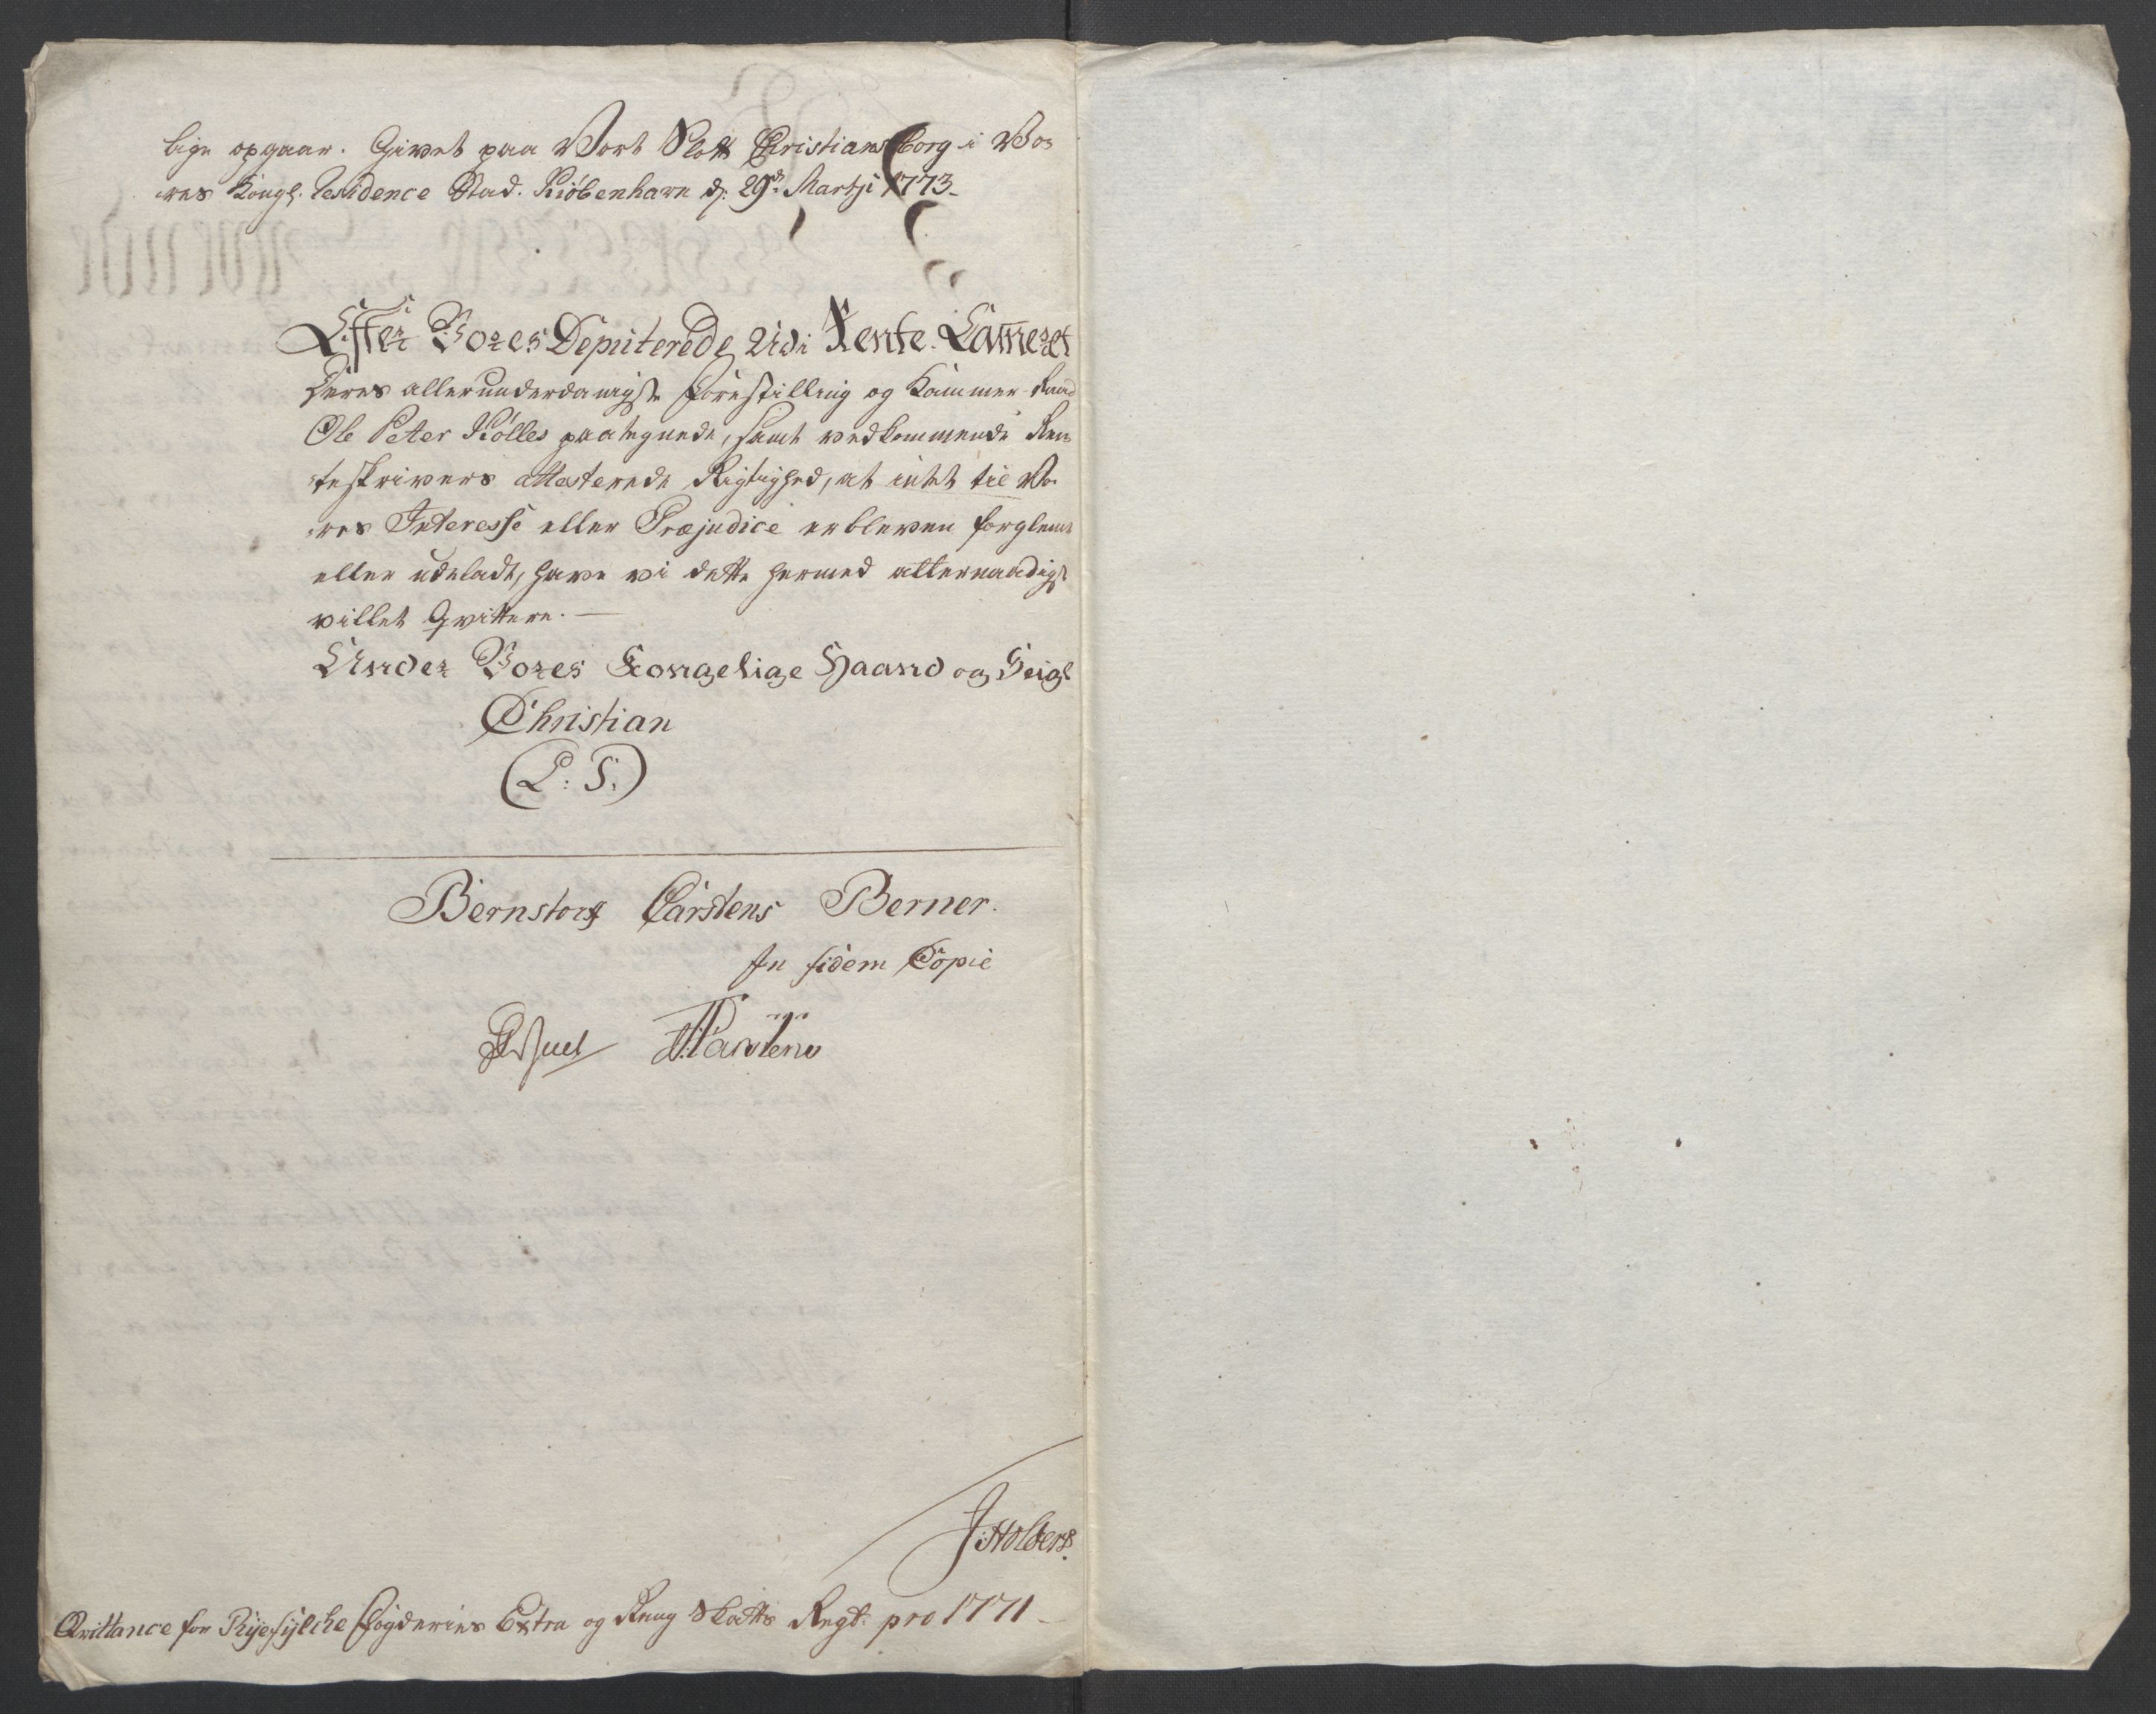 lige opgaar. Givet paa Vort Slott Christiansborg i Vo-
res Kongl. Residence Stad. Kiøbenhavn d. 29de Martji 1773.
Efter Vores Deputerede Udi Rente-Cammeret
Deres allerunderdanigste Forestilling og Kammer-Raad
Ole Peter Kølles paategnede, samt vedkommende Ren-
teskrivers attesterede Rigtighed, at intet til Vo-
res Interesse eller Præjudice er bleven forglemt
eller udeladt, have vi dette hermed allernaadigst
villet Qvittere.
Under Vores Kongelige Haand og Seigl
Christian
(L. S.)
Bernstorff Carstens Berner.
In fidem Copie
Martens
J Holbers
Qvittance for Ryefylche Fogderies Extra og Rang Skatts Regsk. pro 1771